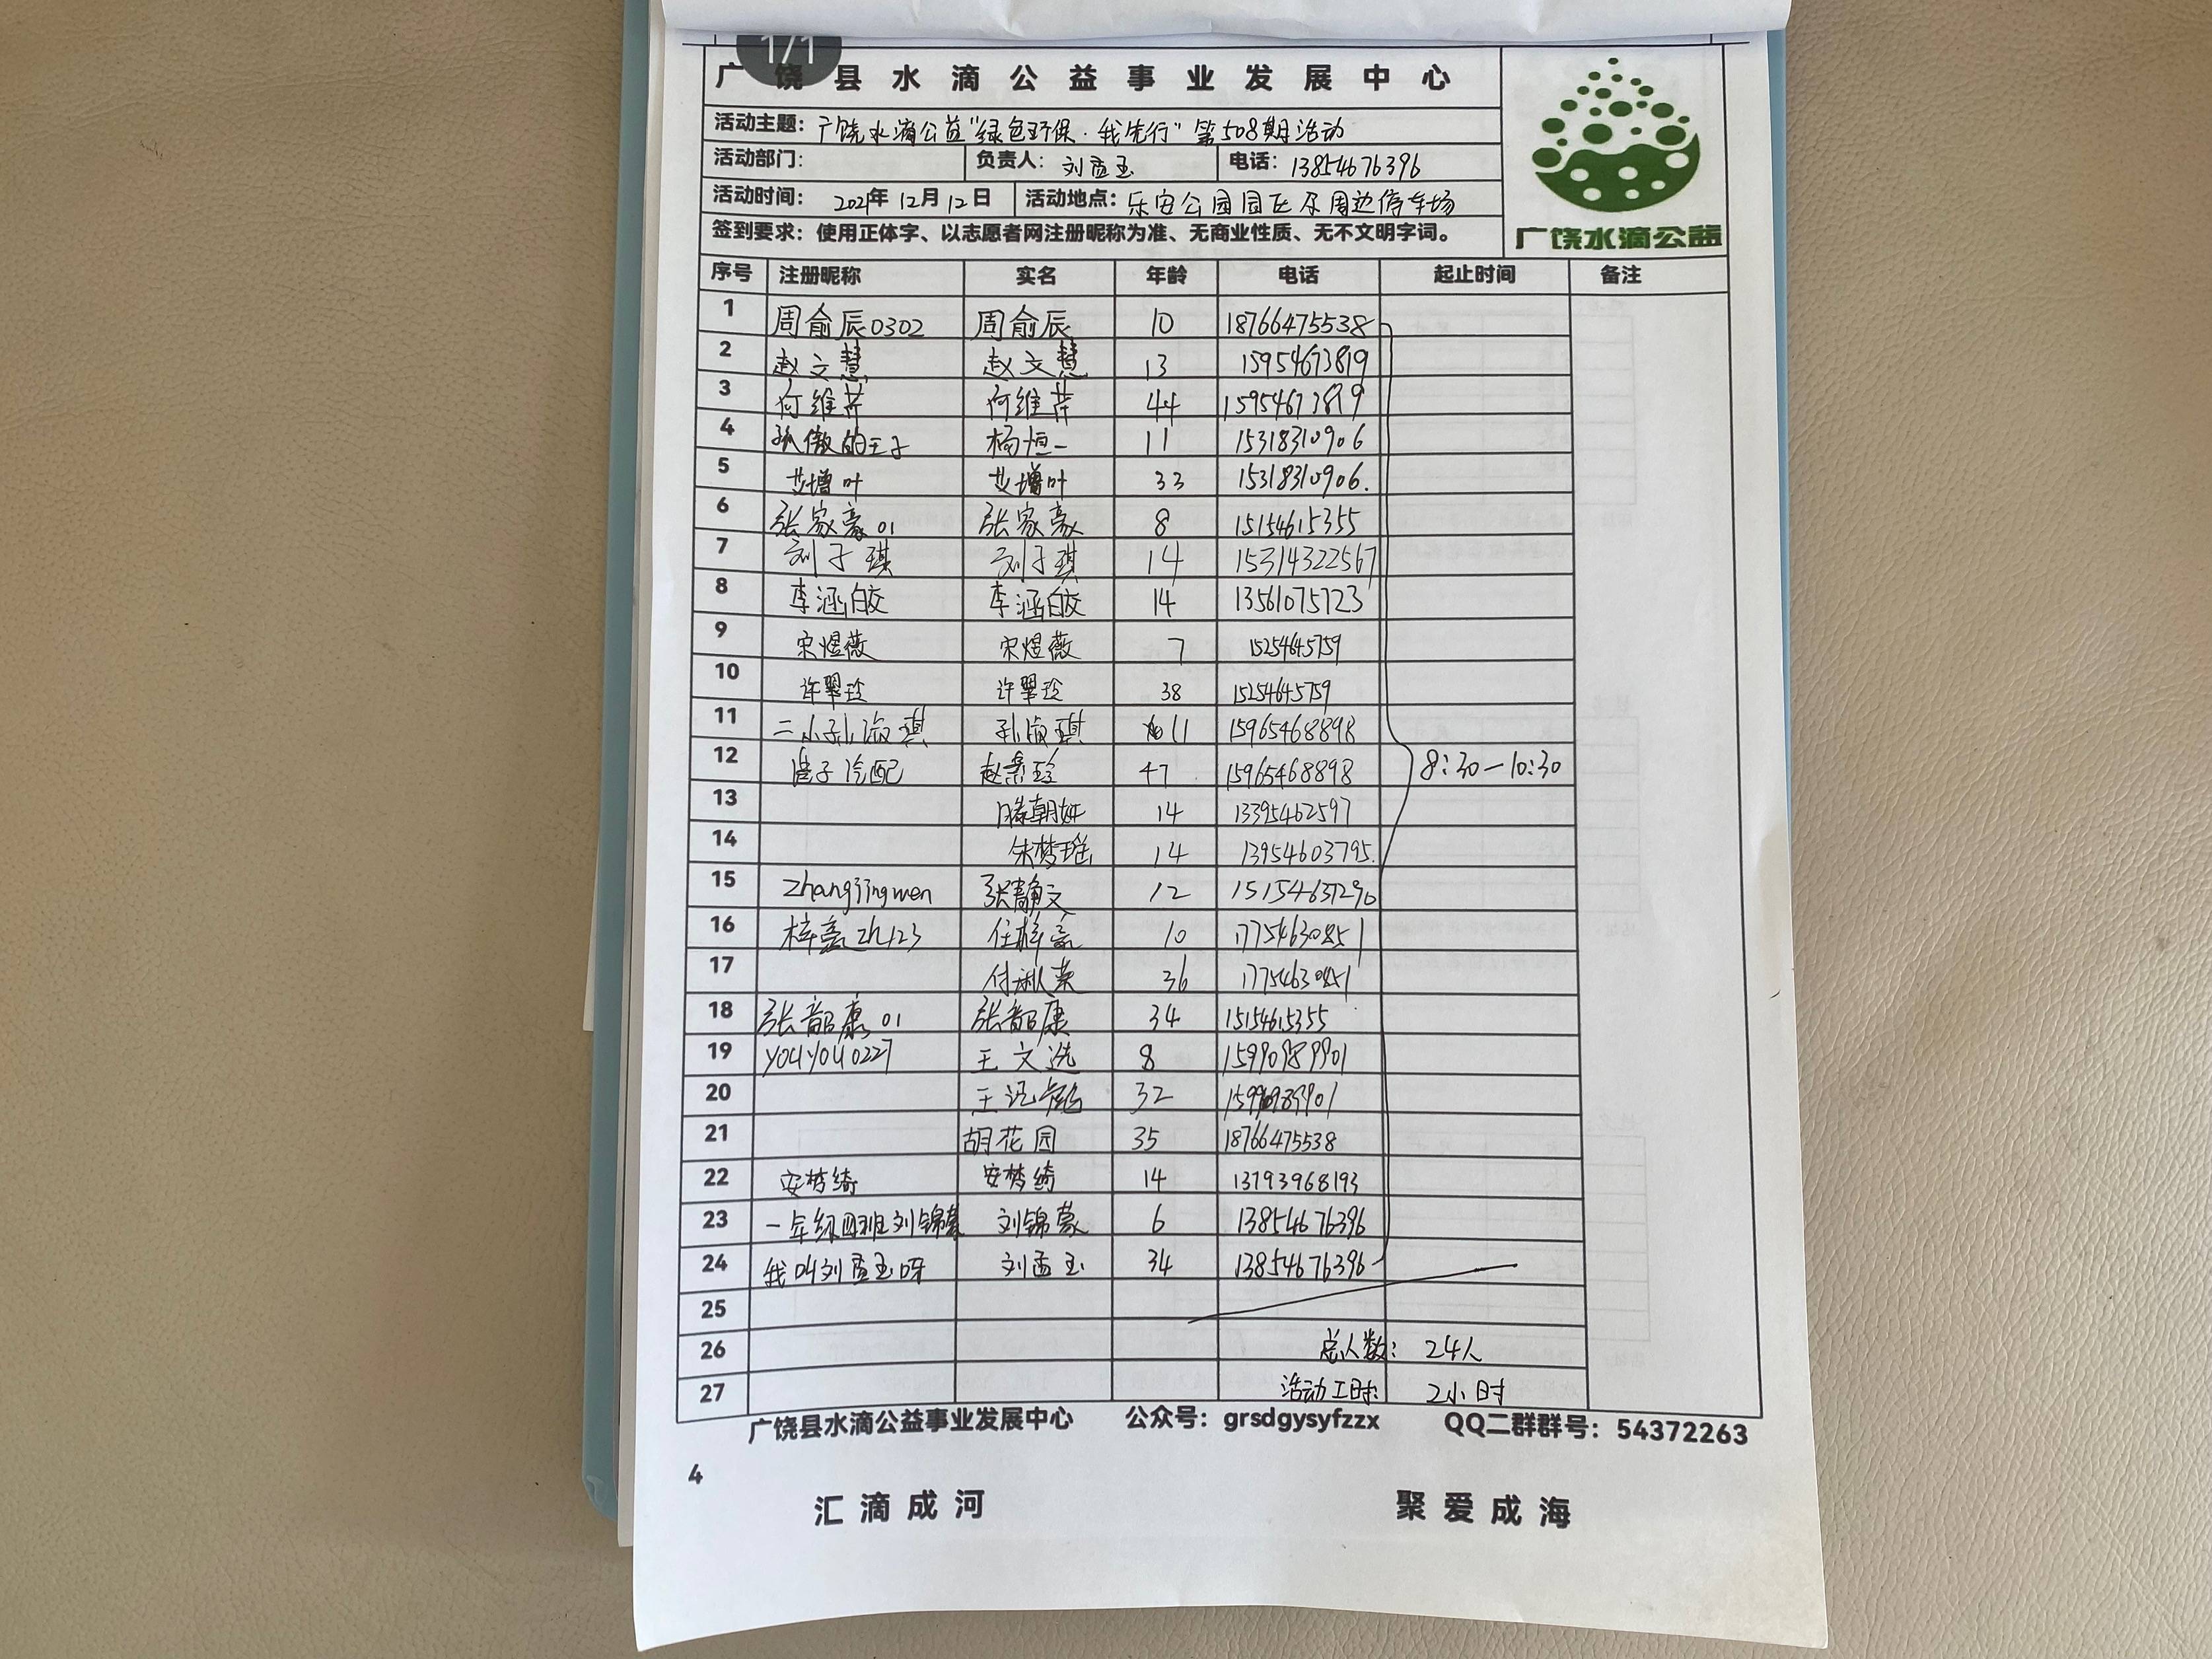 1/1
广饶县水滴公益事业发展中心
活动主题：广饶水滴公益"绿色环保·我先行"第508期活动
活动部门： 负责人：刘孟玉 电话：13854676396
活动时间：2021年12月12日 活动地点：乐安公园园区及周边停车场
签到要求：使用正体字、以志愿者网注册昵称为准、无商业性质、无不文明字词。
广饶水滴公益
序号 注册昵称 实名 年龄 电话 起止时间 备注
1 周俞辰0302 周俞辰 10 18766475538
2 赵文慧 赵文慧 13 15954673819
3 何维芹 何维芹 44 15954673819
4 孤傲的王子 杨恒一 11 15318310906
5 艾增叶 艾增叶 33 15318310906.
6 张家豪01 张家豪 8 15154615355
7 刘子琪 刘子琪 14 15314322567
8 李涵皎 李涵皎 14 13561075723
9 宋煜薇 宋煜薇 7 15254645759
10 许翠玲 许翠玲 38 15254645759
11 二小孙淑琪 孙淑琪 11 15965468898
12 汽配 赵景玲 47 15965468898 8:30—10:30
13 滕朝妍 14 13395462597
14 朱梦瑶 14 13954603795.
15 zhangjingwen 张静文 12 15154637290
16 梓豪zh123 任梓豪 10 17754630851
17 付秋荣 36 17754630851
18 张韶康01 张韶康 34 15154615355
19 youyou0227 王文选 8 15990989901
20 王 32 15990989901
21 胡花园 35 18766475538
22 安梦绮 安梦绮 14 13793968193
23 一年级四班刘锦蒙 刘锦蒙 6 13854676396
24 我叫刘孟玉呀 刘孟玉 34 13854676396
25
26 总人数：24人
27 活动工时：2小时
广饶县水滴公益事业发展中心 公众号：grsdgysyfzzx QQ二群群号：54372263
4
汇滴成河 聚爱成海